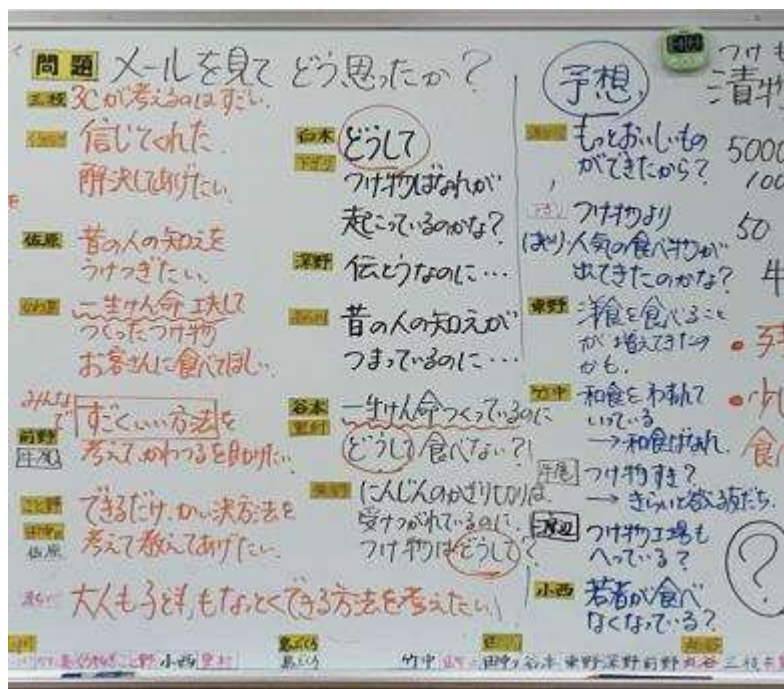 問題 メールを見て どう思ったか?
三枝 3Cが考えるのはすごい。
信じてくれた。
解決してあげたい
佐原 昔の人の知えを
うけつぎたい。
一生けん命 工夫して
つくったつけ物
お客さんに食べてほしい
みんなで すごくいい方法を
前野 考えて かわつるを助けたい
牛尾
こと野 できるだけ、かい決方法を
田中 考えて教えてあげたい。
佐原
大人も子どももなっとくできる方法を考えたい
白木 どうして
つけ物ばなれが
起こっているのかな?
深野 伝とうなのに…
昔の人の知えが
つまっているのに…
谷本 一生けん命つくっているのに
里村 どうして食べない?
にんじんのかざり切りは
受けつがれているのに、
つけ物はどうして?
予想
もっとおいしいもの
ができたから?
つけ物より
人気の食べ物が
出てきたのかな?
東野 洋食を食べること
が増えてきたの
かも。
竹中 和食をわすれて
いっている
→和食ばなれ。
牛尾 つけ物すき?
→きらいと答える友だち。
渡辺 つけ物工場も
へっている?
小西 若者が食べ
なくなっている?
つけも
漬物
5000
100
50
牛
・少し
食べ
?
小西 里村
竹中 田中 谷本 東野 深野 前野 三枝